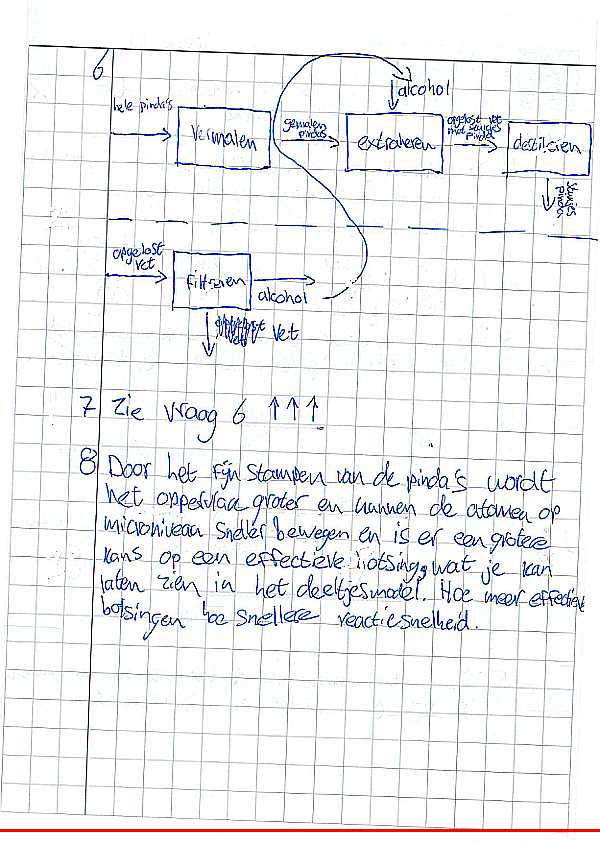 6
alcohol
hele pinda's
gemalen pindas
opgelost vet met stukjes pinda's
vermalen
extraheren
destileren
stukjes pinda
opgelost vet
Filtreren
alcohol
vet
7 Zie vraag 6 ↑↑↑
8 Door het fijn stampen van de pinda's wordt
het oppervlak groter en kunnen de atomen op
microniveau sneller bewegen en is er een grotere
kans op een effectieve botsing, wat je kan
laten zien in het deeltjesmodel. Hoe meer effectieve
botsingen hoe snellere reactiesnelheid.